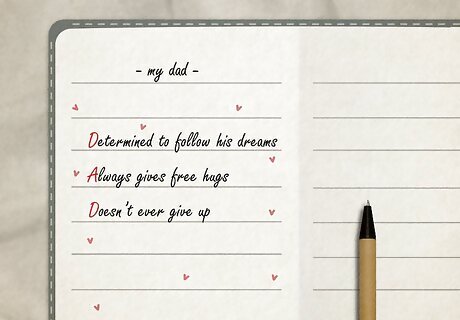 - my dad -
Determined to follow his dreams
Always gives free hugs
Doesn't ever give up